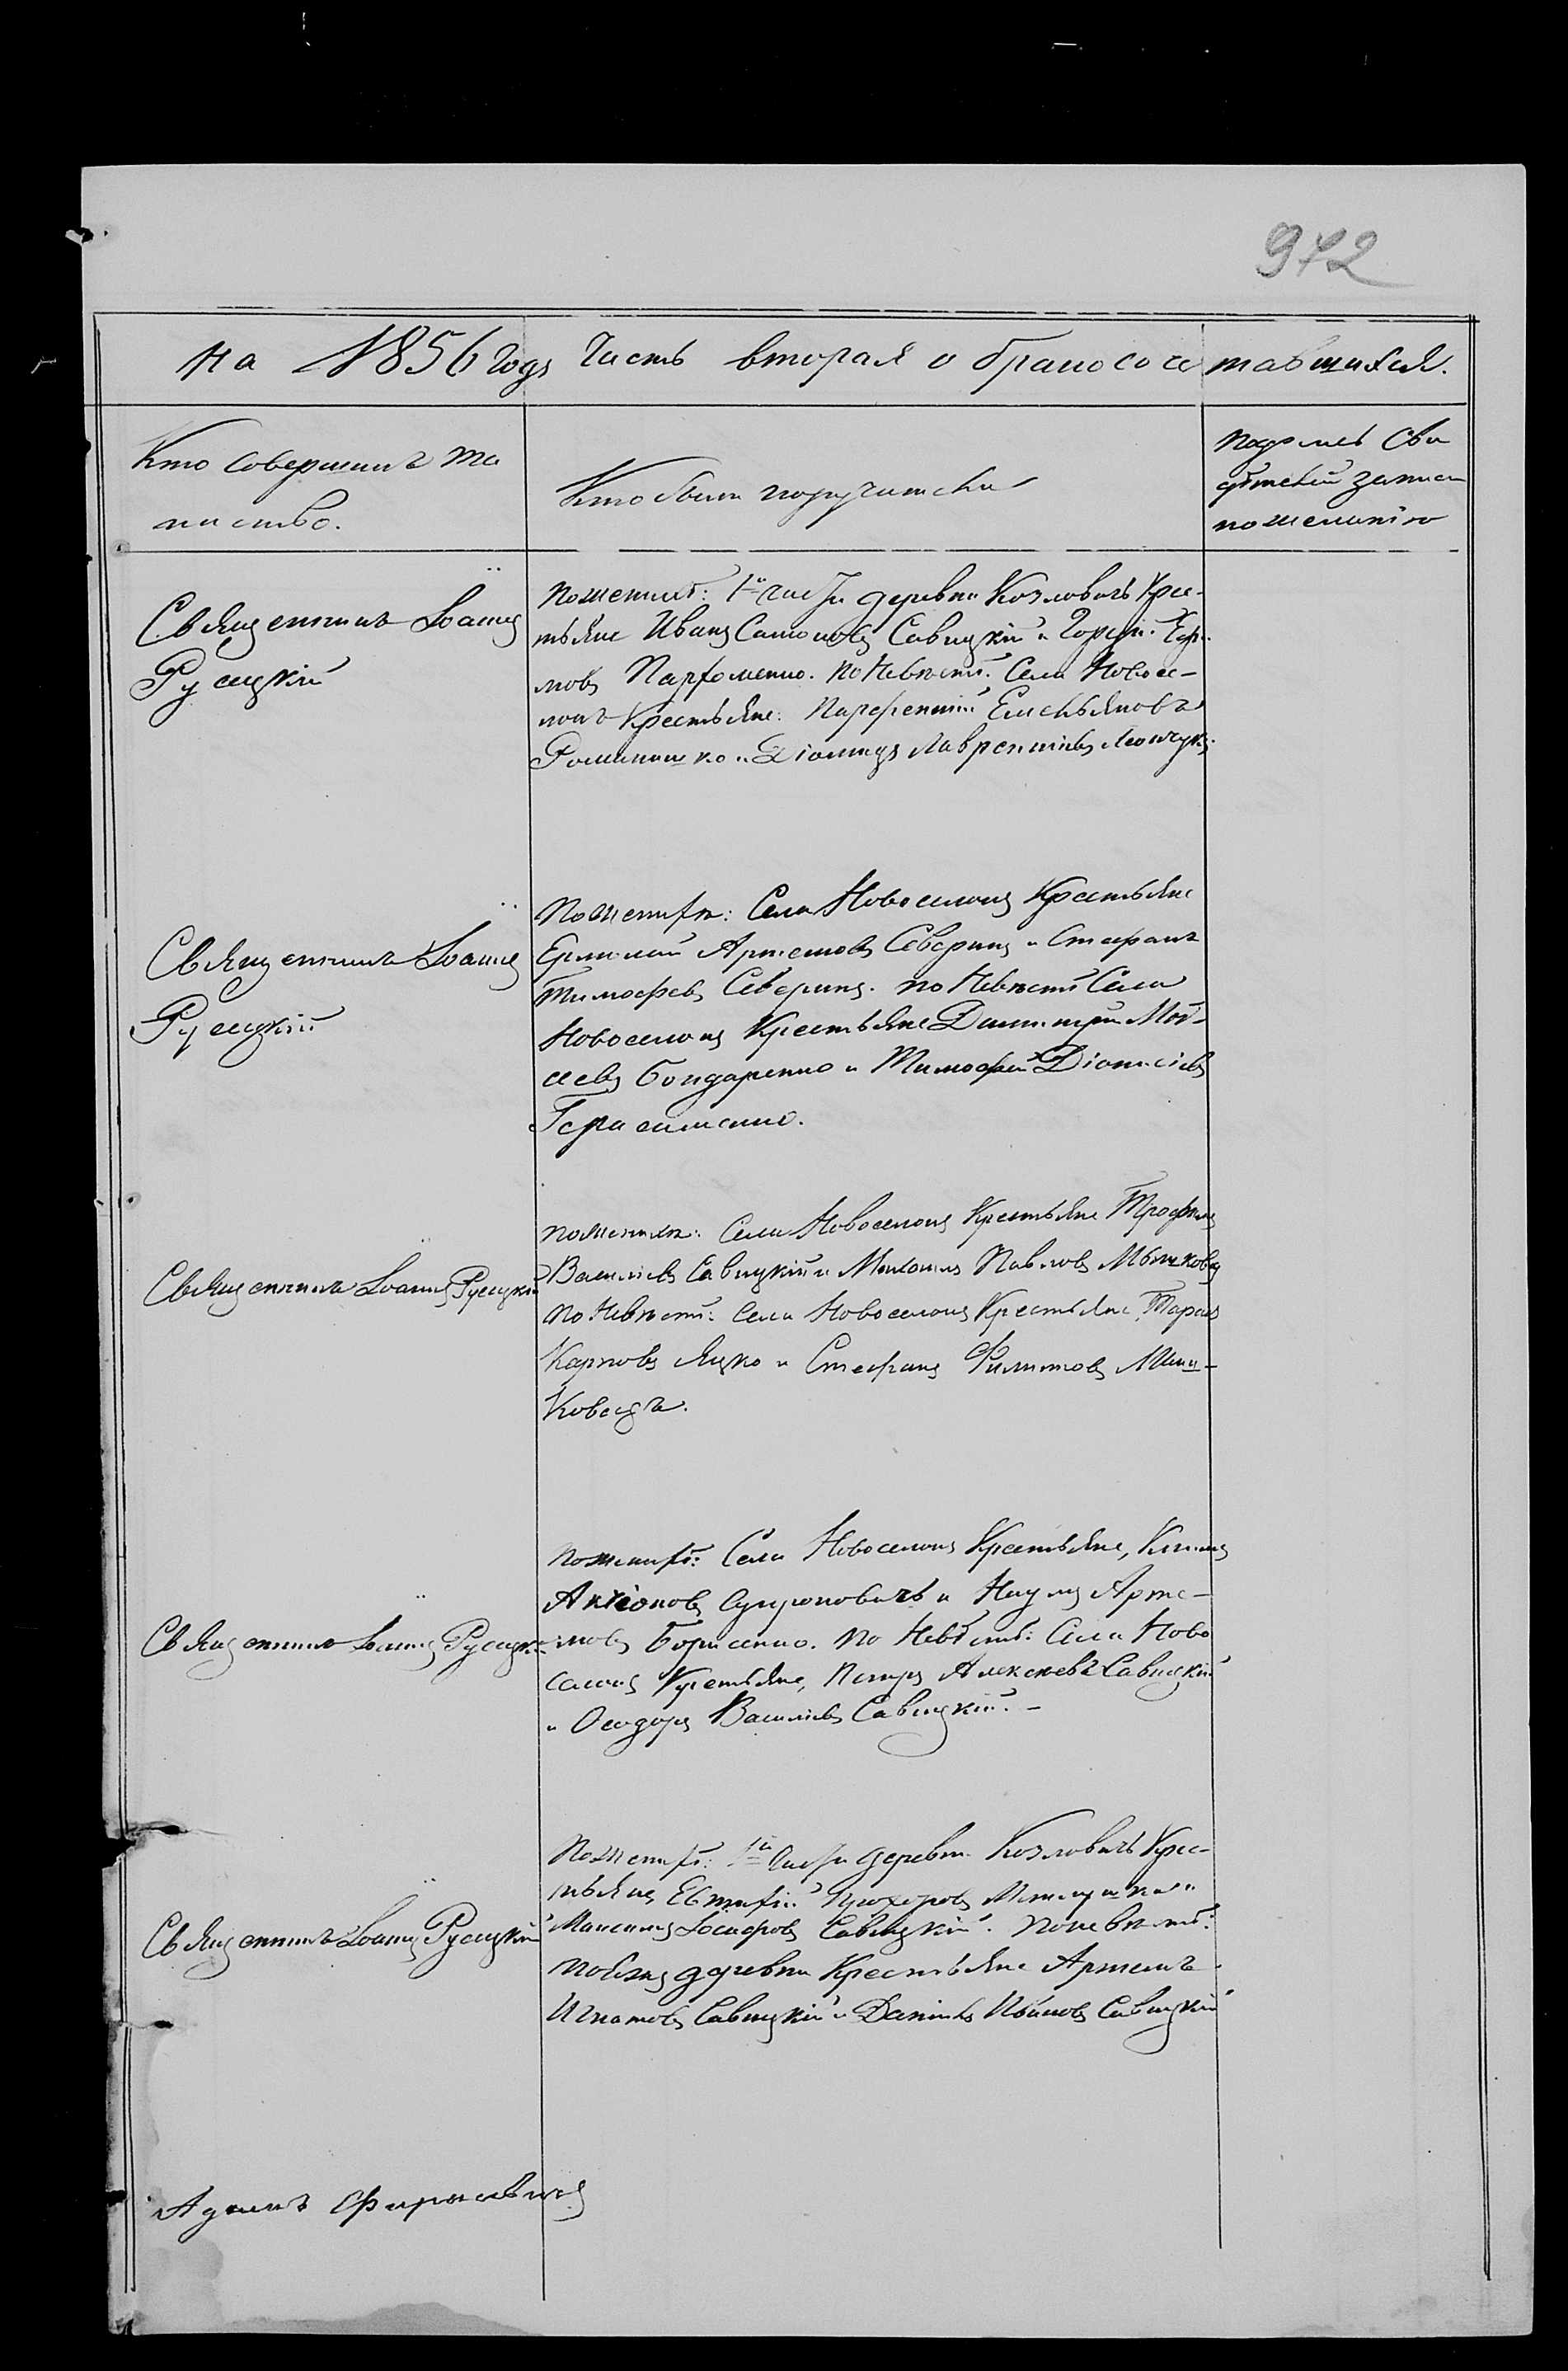 972
на 1856 годъ Часть вторая о бракосочетавшихся.
Кто совершилъ та
инство.
Кто были поручители
подпись Сви
дѣтелей записи
по желанію
Священникъ Іоаннъ
Русецкій
По женихѣ: 1й части деревни Козловичь Крес-
тьяне Иванъ Савицкій и
мовъ Парфоменко. По Невѣстѣ: Села Новосе-
локъ Крестьяне: Парфентій Емельяновъ
Романенко и Діомидъ Лаврентіевъ
Священникъ Іоаннъ
Русецкій
По женихѣ: Села Новоселокъ Крестьяне
Ермолай Артемовъ Северинъ и Стефанъ
Тимофѣевъ Северинъ. по Невѣстѣ Села
Новоселокъ Крестьяне Димитрій Мои-
сеевъ Бондаренко и Тимофей Діонисіевъ
Герасименко.
Священникъ Іоаннъ Русецкій
По женихѣ: Села Новоселокъ Крестьяне Трофимъ
Васильевъ Савицкій и Павловъ Мышковецъ
по Невѣстѣ: Села Новоселокъ Крестьяне, Тарасъ
Карповъ Яцко и Стефанъ Филиповъ Мыш-
ковецъ.
Священникъ Іоаннъ Русецкій
По женихѣ: Села Новоселокъ Крестьяне, Климъ
и Наумъ Арте-
мовъ Борисенко. По Невѣстѣ: Села Ново
селокъ Крестьяне, Петръ Алексѣевъ Савицкій
и Ѳеодоръ Васильевъ Савицкій. -
Священникъ Іоаннъ Русецкій
По женихѣ: 1й части деревни Козловичь Крес-
тьяне Евтихій Прохоровъ и
Максимъ Іосифовъ Савицкій. По невѣстѣ:
деревни Крестьяне Артемъ
Игнатовъ Савицкій и Даніилъ Ивановъ Савицкій